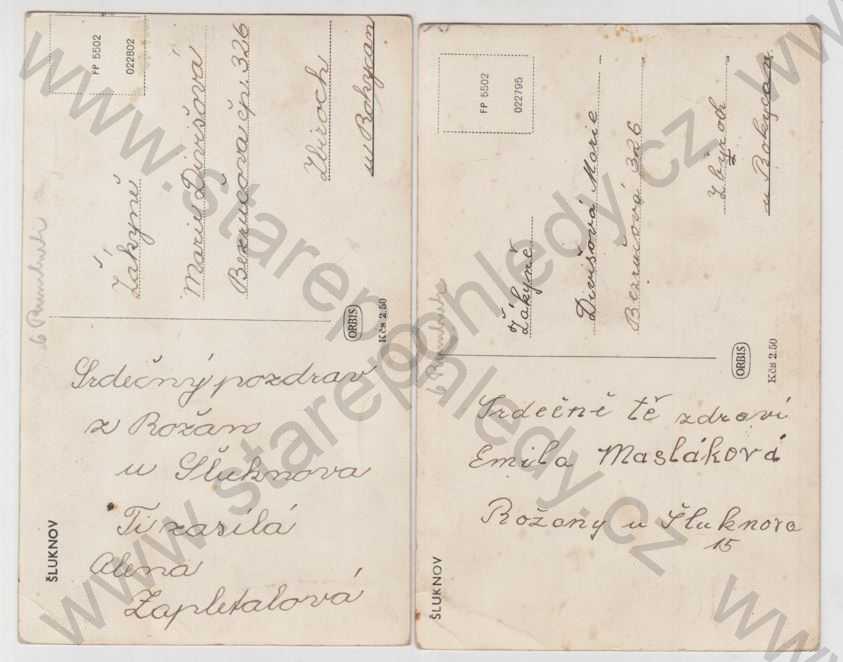 FP 5502
022802
Žákyně
Marie Divišová
Bezručova čp. 326
Zbiroch
u Rokycan
ORBIS
Kčs 2.50
Srdečný pozdrav
z Rožan
u Šluknova
Ti zasílá
Alena
Zapletalová
ŠLUKNOV
FP 5502
022795
Žákyně
Divišová Marie
Bezručová 326
Zbiroh
u Rokycan
ORBIS
Kčs 2.50
Srdečně tě zdraví
Emila Masláková
Rožany u Šluknova
15
ŠLUKNOV
www.starepohledy.cz
www.starepohledy.cz